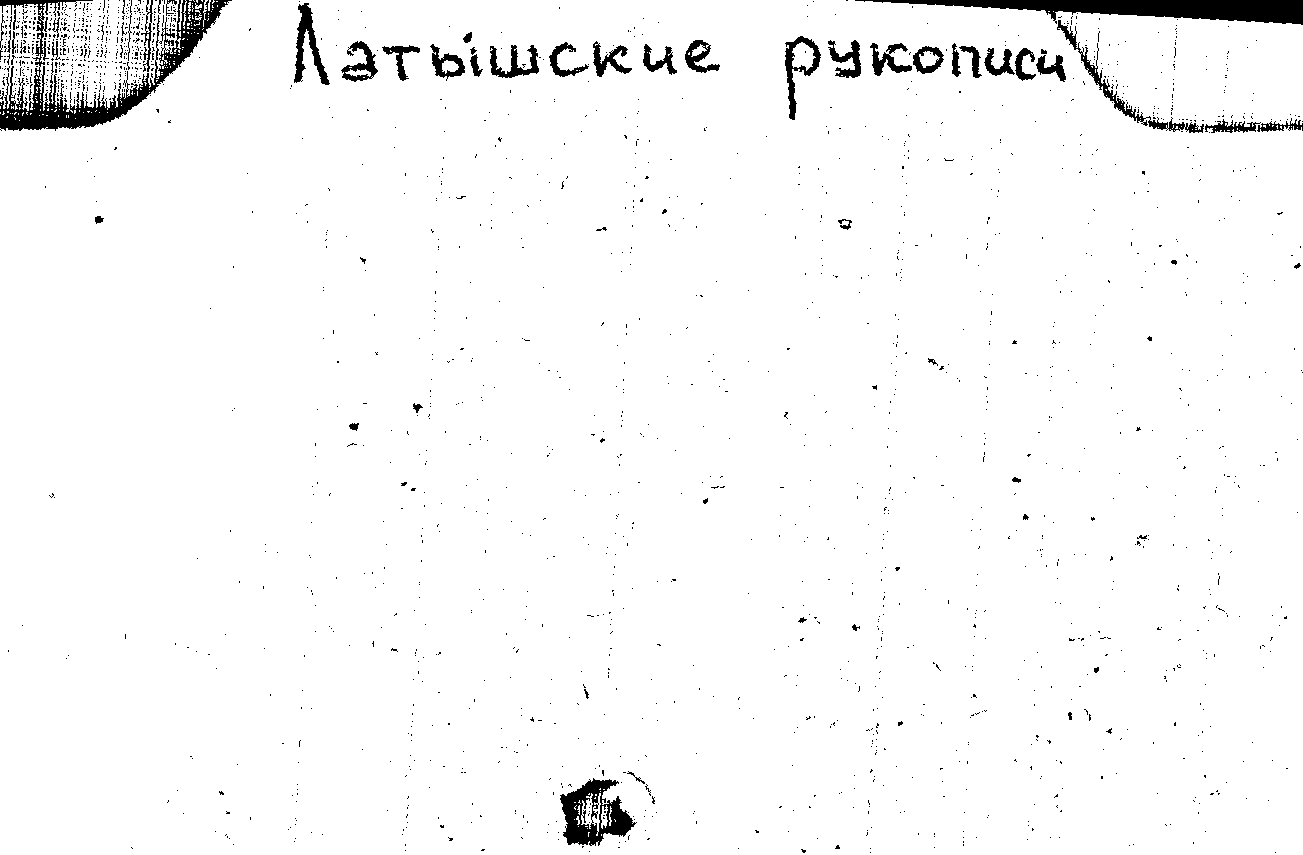 Латышские рукописи